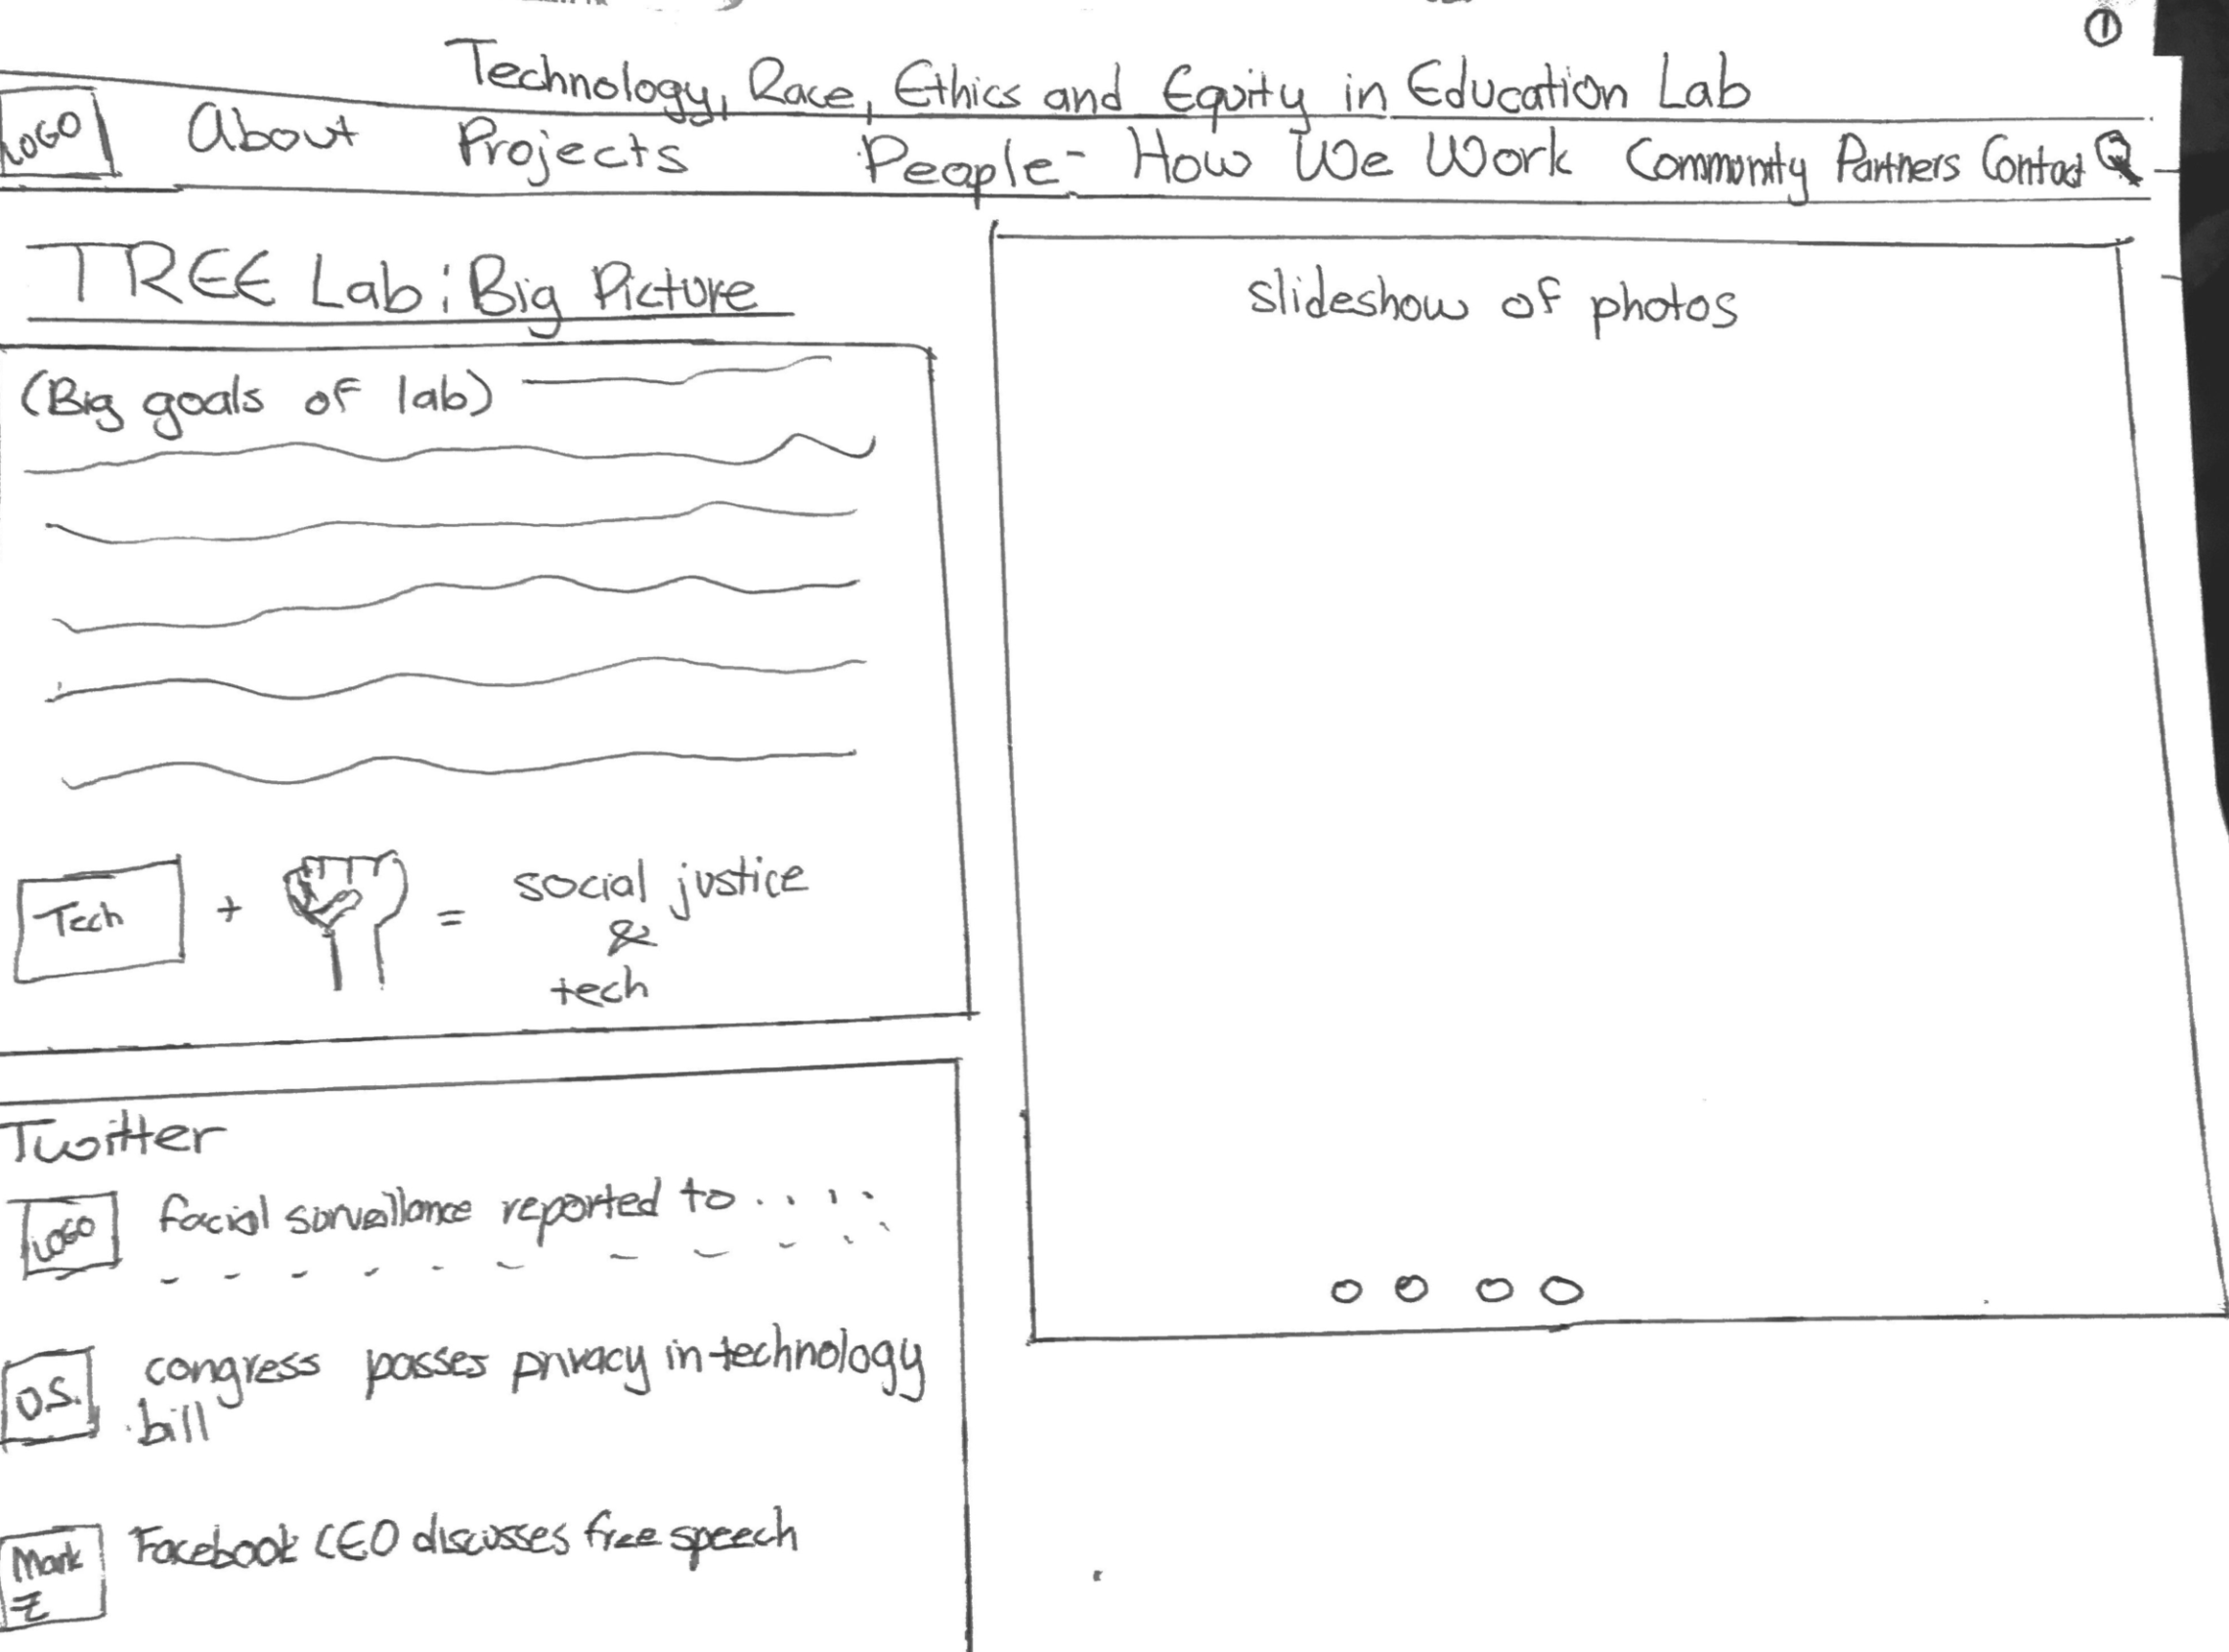 ①
Technology, Race, Ethics and Equity in Education Lab
LOGO About Projects People - How We Work Community Partners Contact
TREE Lab: Big Picture
(Big goals of lab)
Tech + = social justice
&
tech
Twitter
LOGO facial survellance reported to .....
congress passes privacy in technology
bill
Mark Z Facebook CEO discusses free speech
slideshow of photos